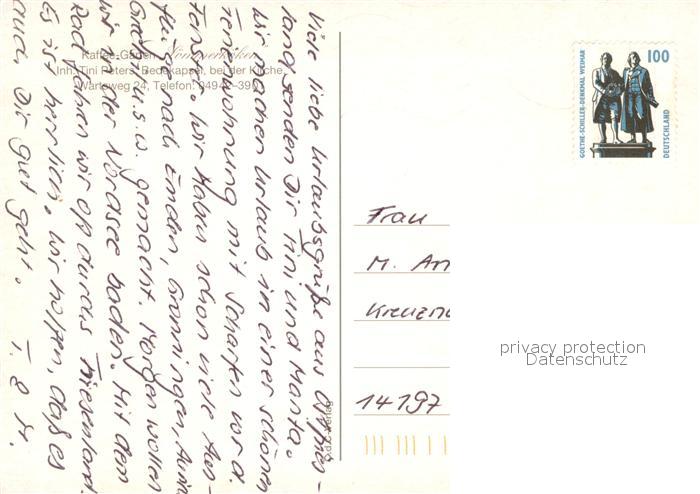 Viele liebe Urlaubsgrüße aus Ostfries-
land senden Dir Tini und Manta.
Wir machen Urlaub in einer schönen
Ferienwohnung mit Schafen vor d.
Fenster. Wir haben schon viele Aus-
flüge nach Emden, Gronningen, Aurich
u.s.w. gemacht. Morgen wollen
wir in der Nordsee baden. Mit dem
Rad fahren wir oft durchs Friesenland.
Es ist herrlich. Wir hoffen, daß es
auch Dir gut geht. T. & M.
Kaffee-Garten
Inh. Tini Peters, Bedekaspel, bei der Kirche
Wartsweg 24, Telefon:
Verlag
GOETHE-SCHILLER-DENKMAL WEIMAR
100
DEUTSCHLAND
Frau
M. An
Kreuzn
14197
privacy protection
Datenschutz